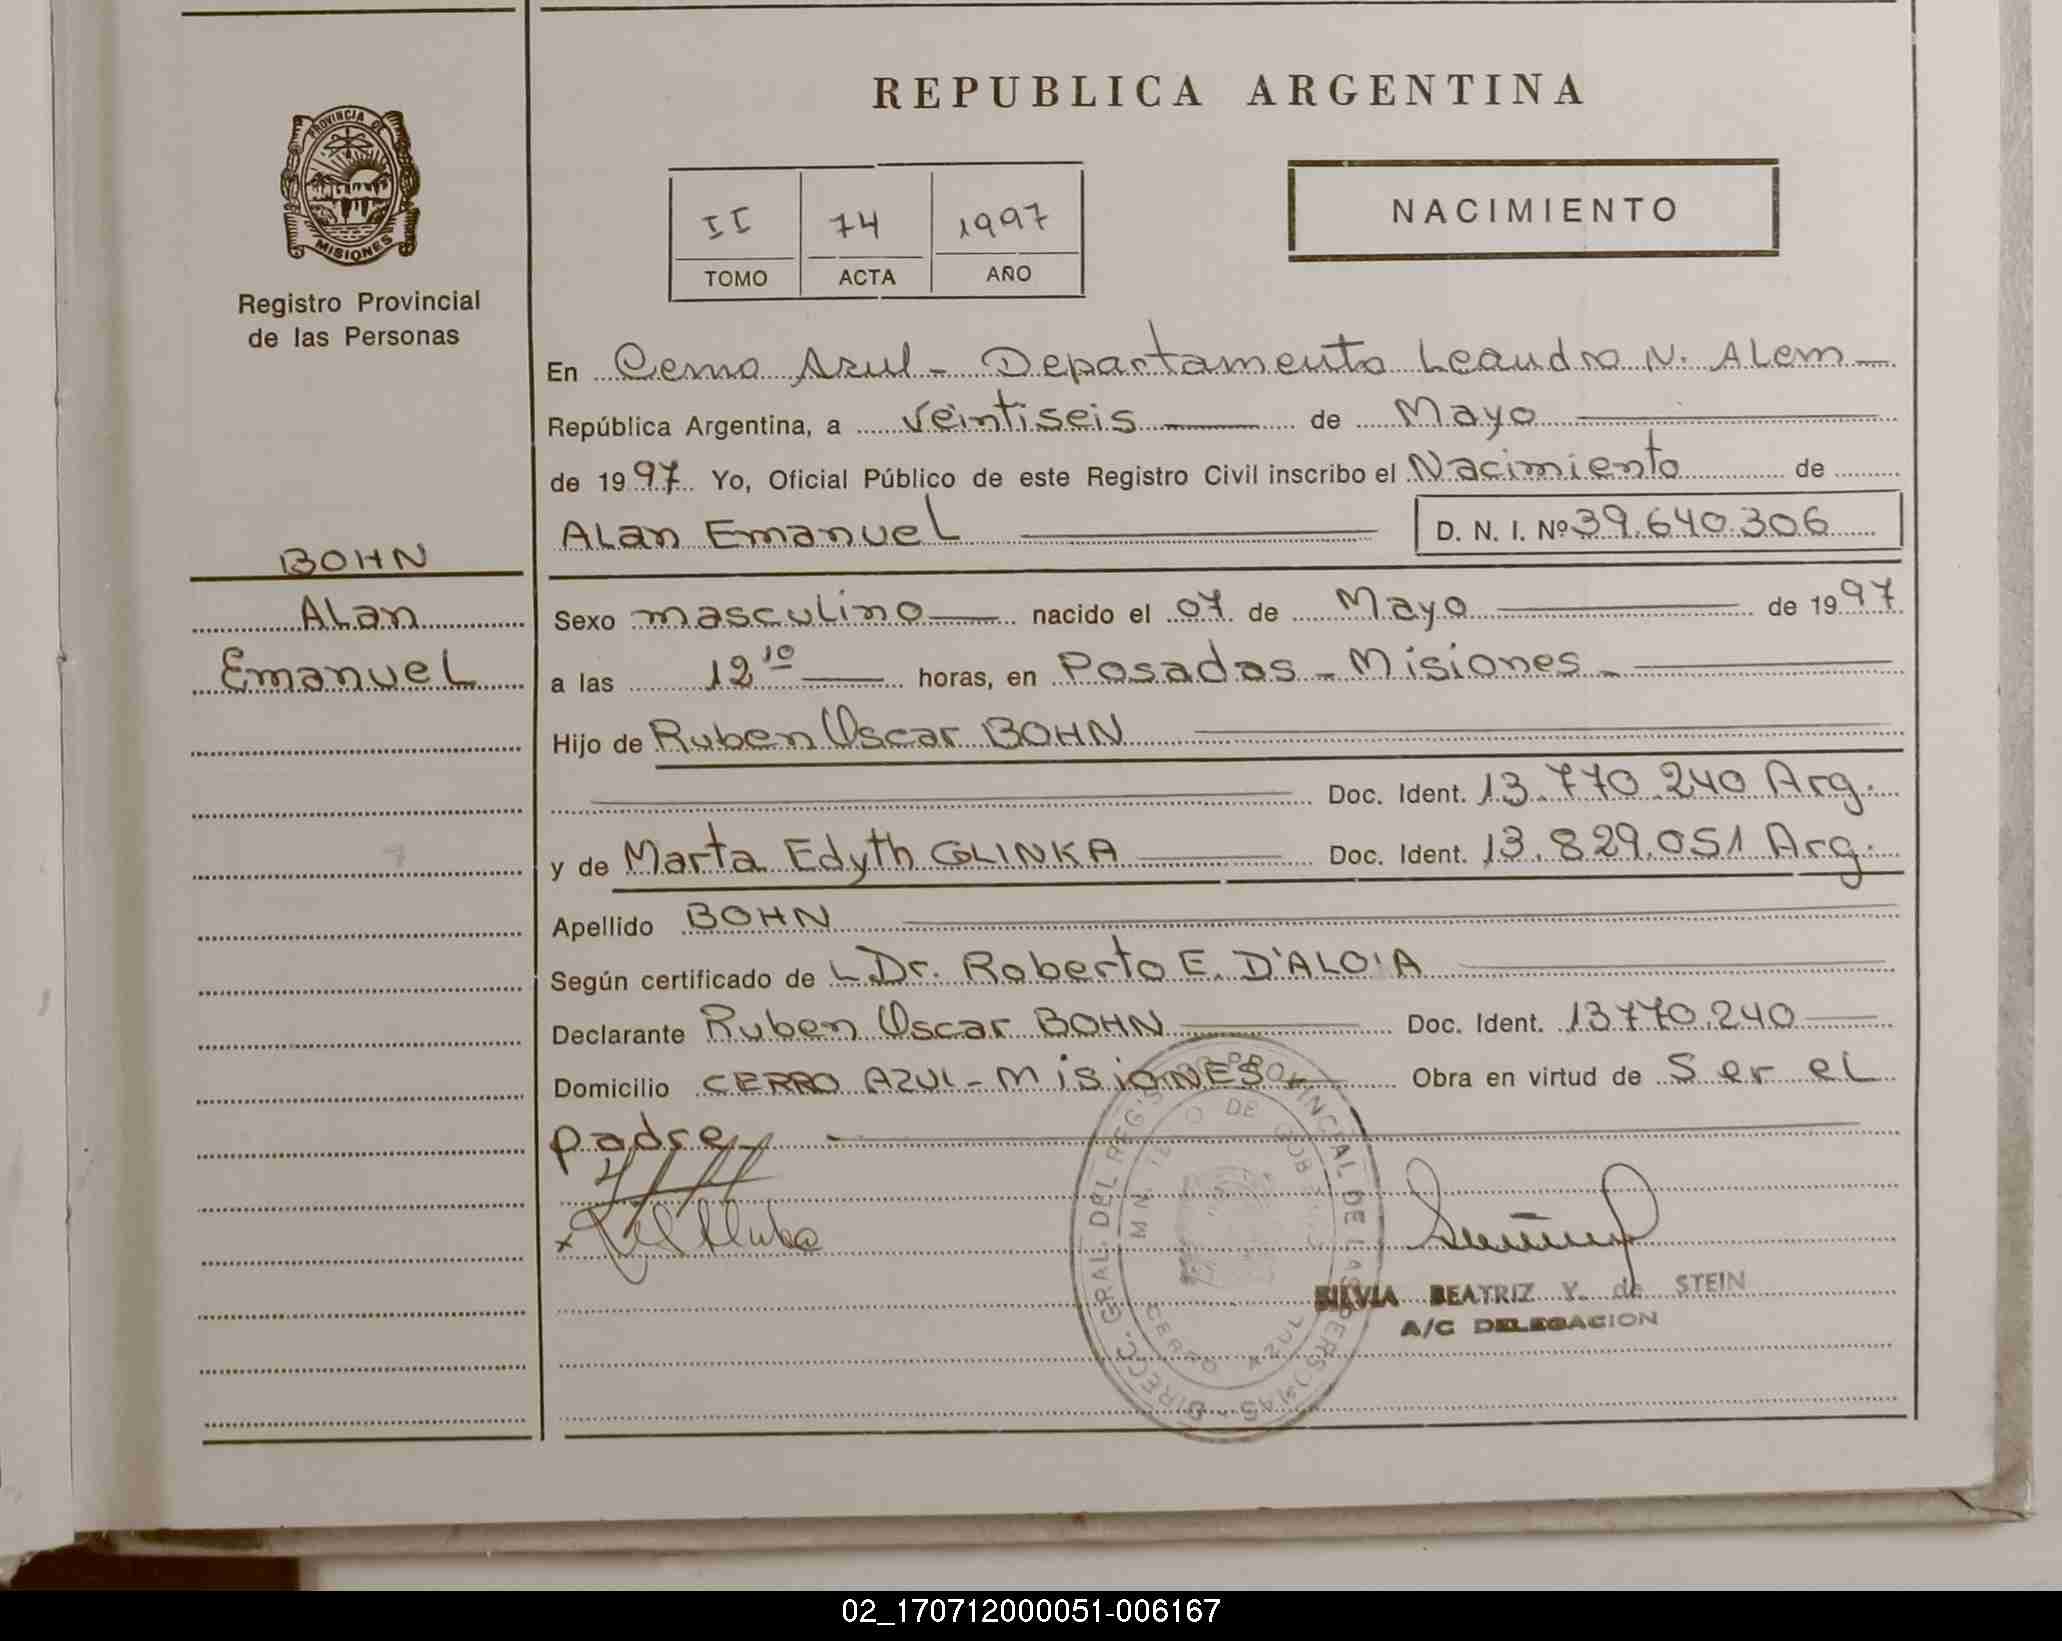 REPUBLICA ARGENTINA
PROVINCIA DE
MISIONES
Registro Provincial
de las Personas
II 74 1997
TOMO ACTA AÑO
NACIMIENTO
En Cerro Azul - Departamento Leandro N. Alem
República Argentina, a veintiseis de Mayo
de 1997 Yo, Oficial Público de este Registro Civil inscribo el Nacimiento de
Alan Emanuel D. N. I. Nº 39.640.306
BOHN
Alan
Emanuel
Sexo masculino nacido el 07 de Mayo de 1997
a las 12 10 horas, en Posadas - Misiones -
Hijo de Ruben Oscar BOHN
Doc. Ident. 13.770.240 Arg.
y de Marta Edyth GLINKA Doc. Ident. 13.829.051 Arg.
Apellido BOHN
Según certificado de L Dr. Roberto E. D'ALOIA
Declarante Ruben Oscar BOHN Doc. Ident. 13770.240
Domicilio CERRO AZUL - MISIONES - Obra en virtud de Ser el
padre
DIRECC. GRAL. DEL REG. PROVINCIAL DE LAS PERSONAS
DE GOBIERNO
CERRO AZUL
SILVIA BEATRIZ Y. de STEIN
A/C DELEGACION
02_170712000051-006167